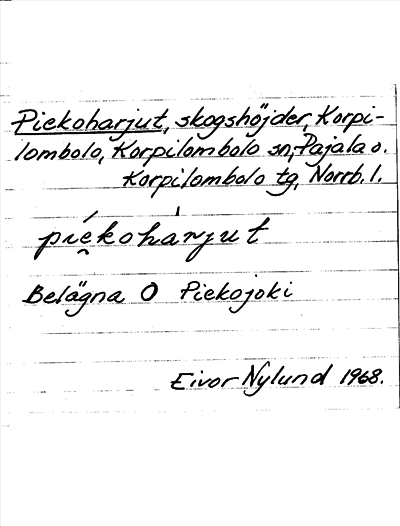 Piekoharjut, skogshöjder, Korpi-
lombolo, Korpilombolo sn, Pajala o.
Korpilombolo tg, Norrb. l.
pìe̯kohàrjut
Belägna O Piekojoki
Eivor Nylund 1968.